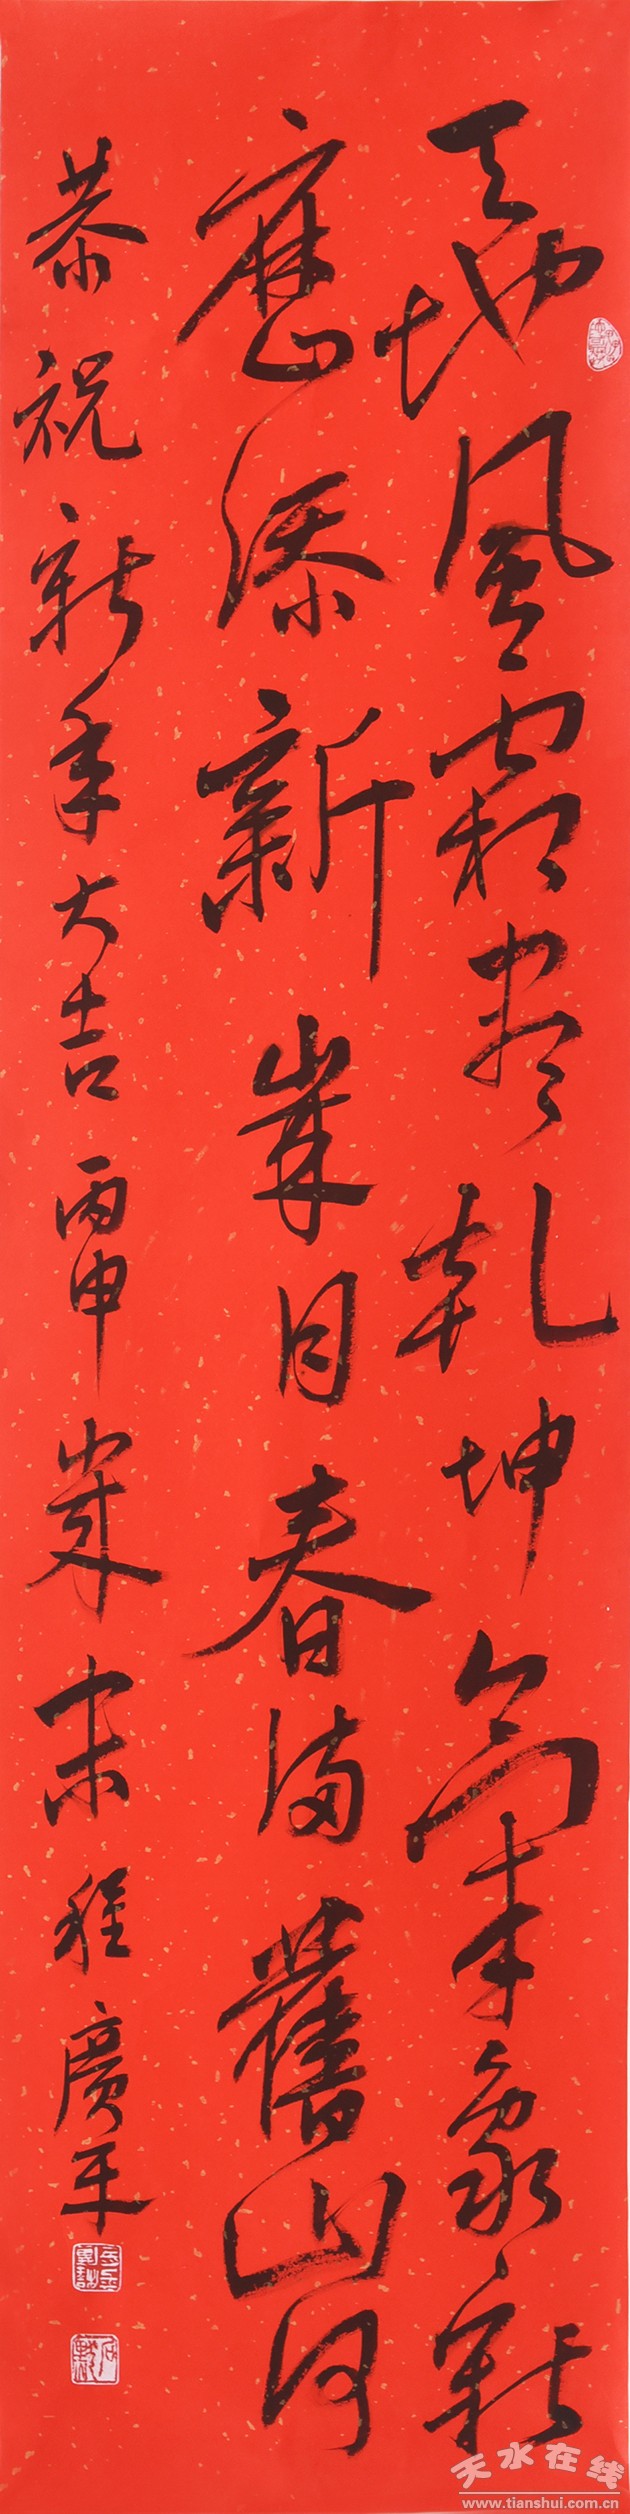 天地風霜尽乾坤氣象新
歷添新歲月春滿舊山河
恭祝新年大吉丙申歲程廣平
天水在线
www.tianshui.com.cn